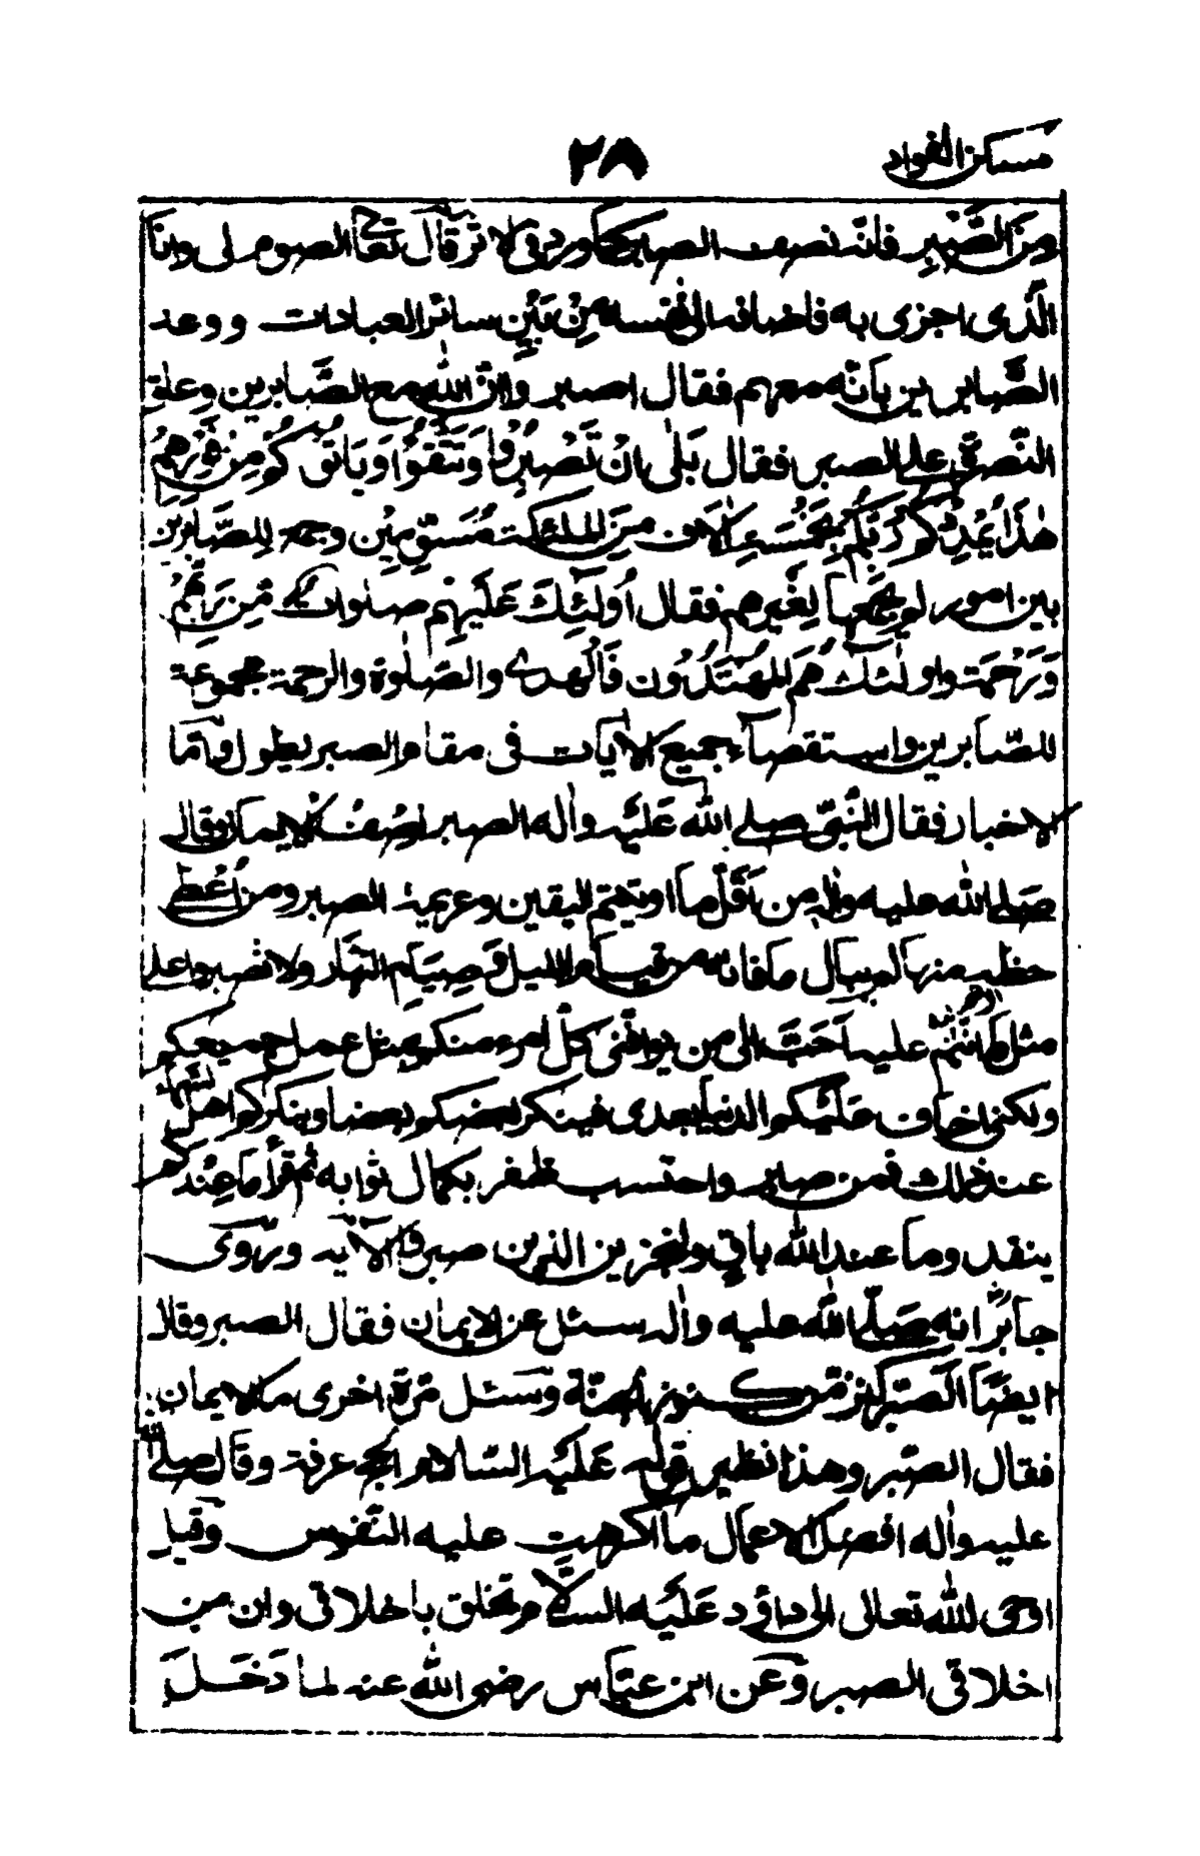 مسكن الفواد
٢٨
ومن الصَّبرِ فانّه نصف الصبر كما ورد فى الاثر قال تعالى الصوم لى وانا
الّذى اجزى به فاضافه الى نفسه مِنْ بَيْنِ سائر العبادات ووعد
الصَّابرين بانّه معهم فقال اصبروا انّ اللّٰه مع الصَّابرين وعلق
النّصرة على الصبر فقال بَلٰى اِنْ تَصْبِرُوْا وَتَتَّقُوْا وَيَاتُوْكُمْ مِنْ فَوْرِهِمْ
هٰذَا يُمْدِدْكُمْ رَبُّكُمْ بِخَمْسَةِ اٰلَافٍ مِنَ الملٰئكة مُسَوِّمِيْن وجمع لِلصَّابرين
بين امور لم يجمعها لِغَيرهم فقال اُولٰئِكَ عَلَيْهِمْ صلوات مِّن رَبِّهِمْ
وَرَحْمَة واولٰئك هُمُ المُهْتَدُوْن فَالهدى والصَّلٰوة والرحمة مجموعة
للصّابرين واستقصاء جميع الايات فى مقام الصبر يطول وامّا
الاخبار فقال النَّبىّ صلى اللّٰه عَلَيْه واٰله الصبر نِصْفُ الايمان وقال
صَلى اللّٰه عليه واٰله من اَقَلّ ما اوتيتم اليقين وعزيمة الصبر ومن اُعْطى
حظه منهما لم يبال ما فاته من قيام الليل وَصِيَامِ النّهار ولان تصبروا على
مثل ما اَنْتُمْ عليه اَحَبّ الى من ان يوافنى كلّ امرء منكم بمثل عمل جميعكم
ولكنى اخاف عَلَيْكم الدنيا بعدى فينكر بعضكم بعضا وينكركم اهل السّماء
عند ذلك فمن صابر واحتسب ظفر بكمال ثوابه ثم قرأ ما عِنْدكم
ينفد وما عند اللّٰه باقٍ ولنجزين الذين صبروا الاٰية وَرَوى
جابرٌ انه صَلّى اللّٰه عليه واٰله سئل عن الايمان فقال الصبر وقال
ايضًا الصّبر كنز من كنوز الجنّة وَسئل مَرّة اخرى ما الايمان
فقال الصّبر وهذا نظير قوله عَلَيْه السّلام الحج عرفة وقال صلى اللّٰه
عليه واٰله افضل الاعمال ما اكرهت عليه النّفوس وَقيل
اوحى للّٰه تعالى الى داؤد عَلَيْه السّلام تخلق باخلاقى وان من
اخلاقى الصبر وَعَن ابن عبّاس رضى اللّٰه عنه لما دَخَلَ